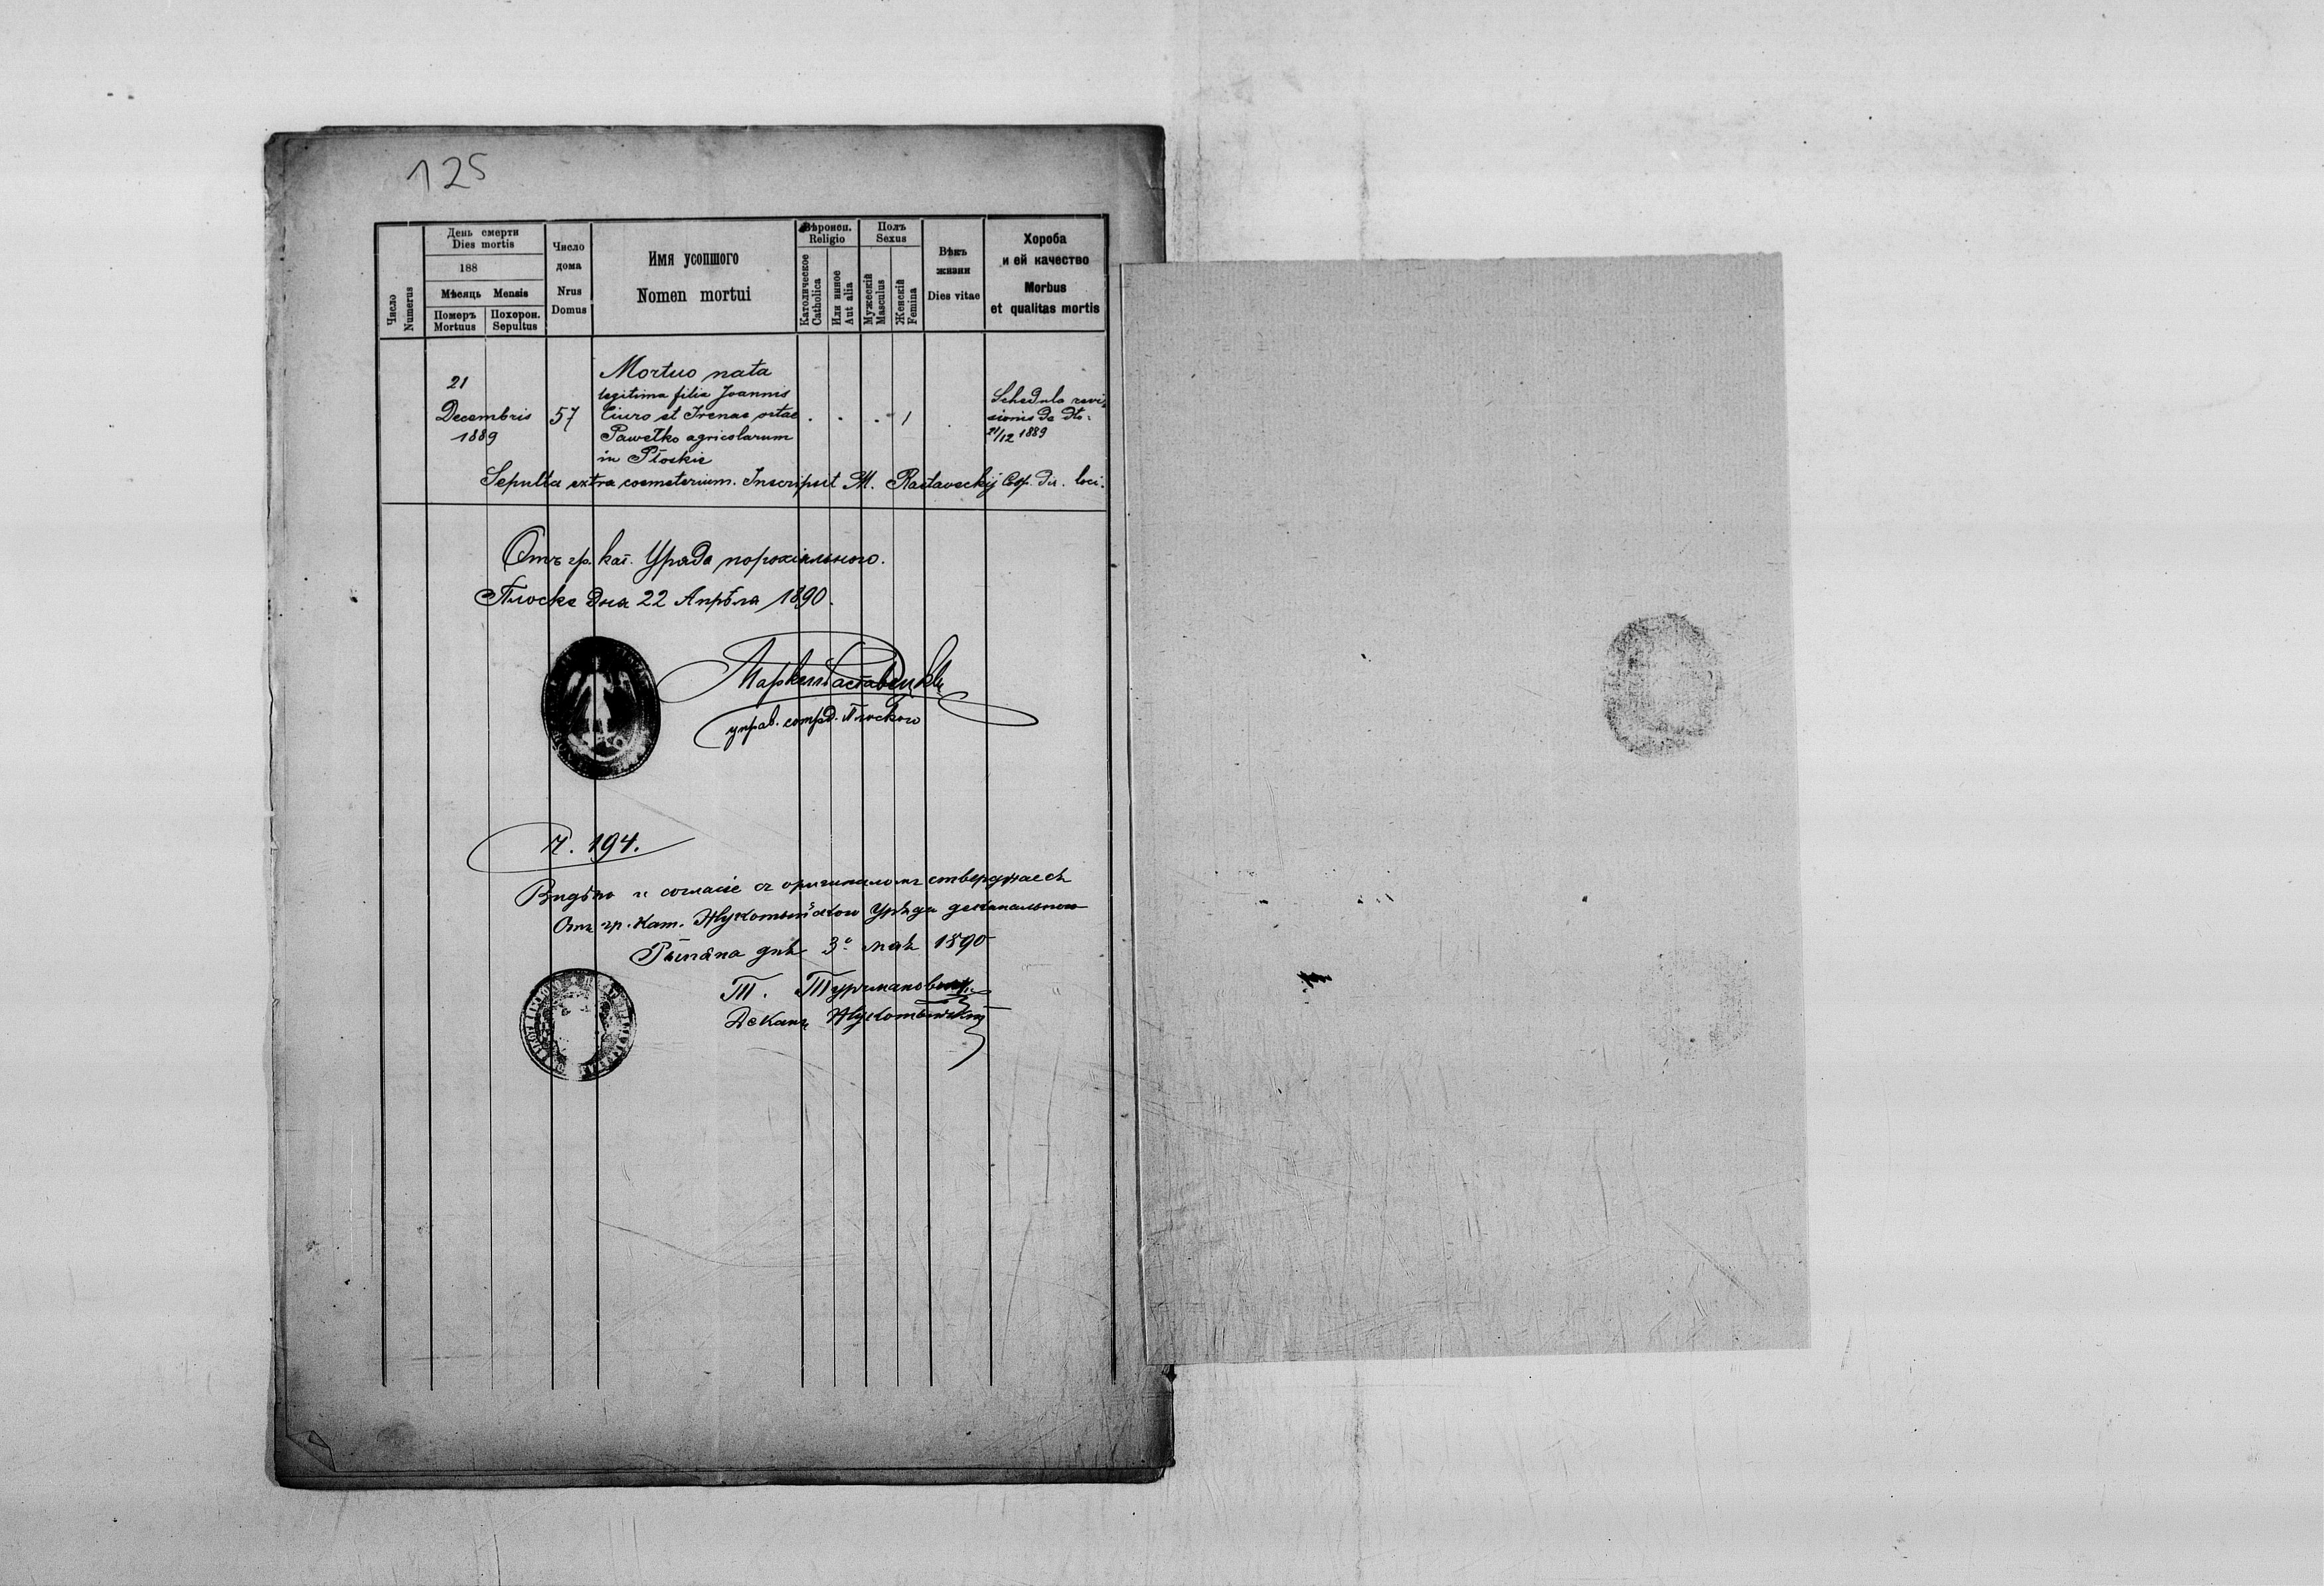 125
Число
Numerus
День смерти
Dies mortis
188
Мѣсяць Mensis
Померъ
Mortuus
Похорон.
Sepultus
Число
дома
Nrus
Domus
Имя усопшого
Nomen mortui
Вѣроисп.
Religio
Католическое
Catholica
Или инное
Aut alia
Полъ
Sexus
Мужескій
Masculus
Женскій
Femina
Вѣкъ
жизни
Dies vitae
Хороба
и ей качество
Morbus
et qualitas mortis
21
Decembris
1889
57
Mortuo nata
legitima filia Joannis
Ciuro et Irenae ortae
Pawełko agricolarum
in Płoskie
. . . 1 .
Schedula revi-
sionis de dto.
21/12 1889
Sepulta extra coemeterium. Inscripsit M. Rastaveckij loci.
Отъ гр. кат. Уряда порохіяльного.
Плоске дня 22 Апрѣля 1890.
управ. сотруд. Плоского
Ч. 194.
Видѣно и согласіе съ оригиналомъ стверджаесь
Отъ гр. кат. Жукотынского Уряда деканального
дня 3º мая 1890
Т. Турчмановичъ
Деканъ Жукотынскій